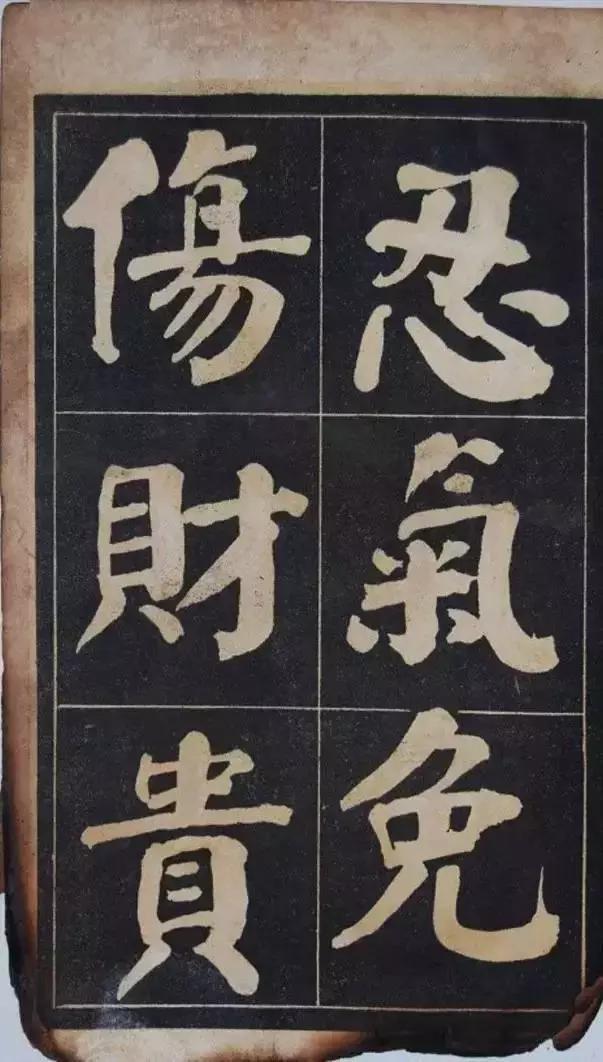 忍氣免
傷財貴